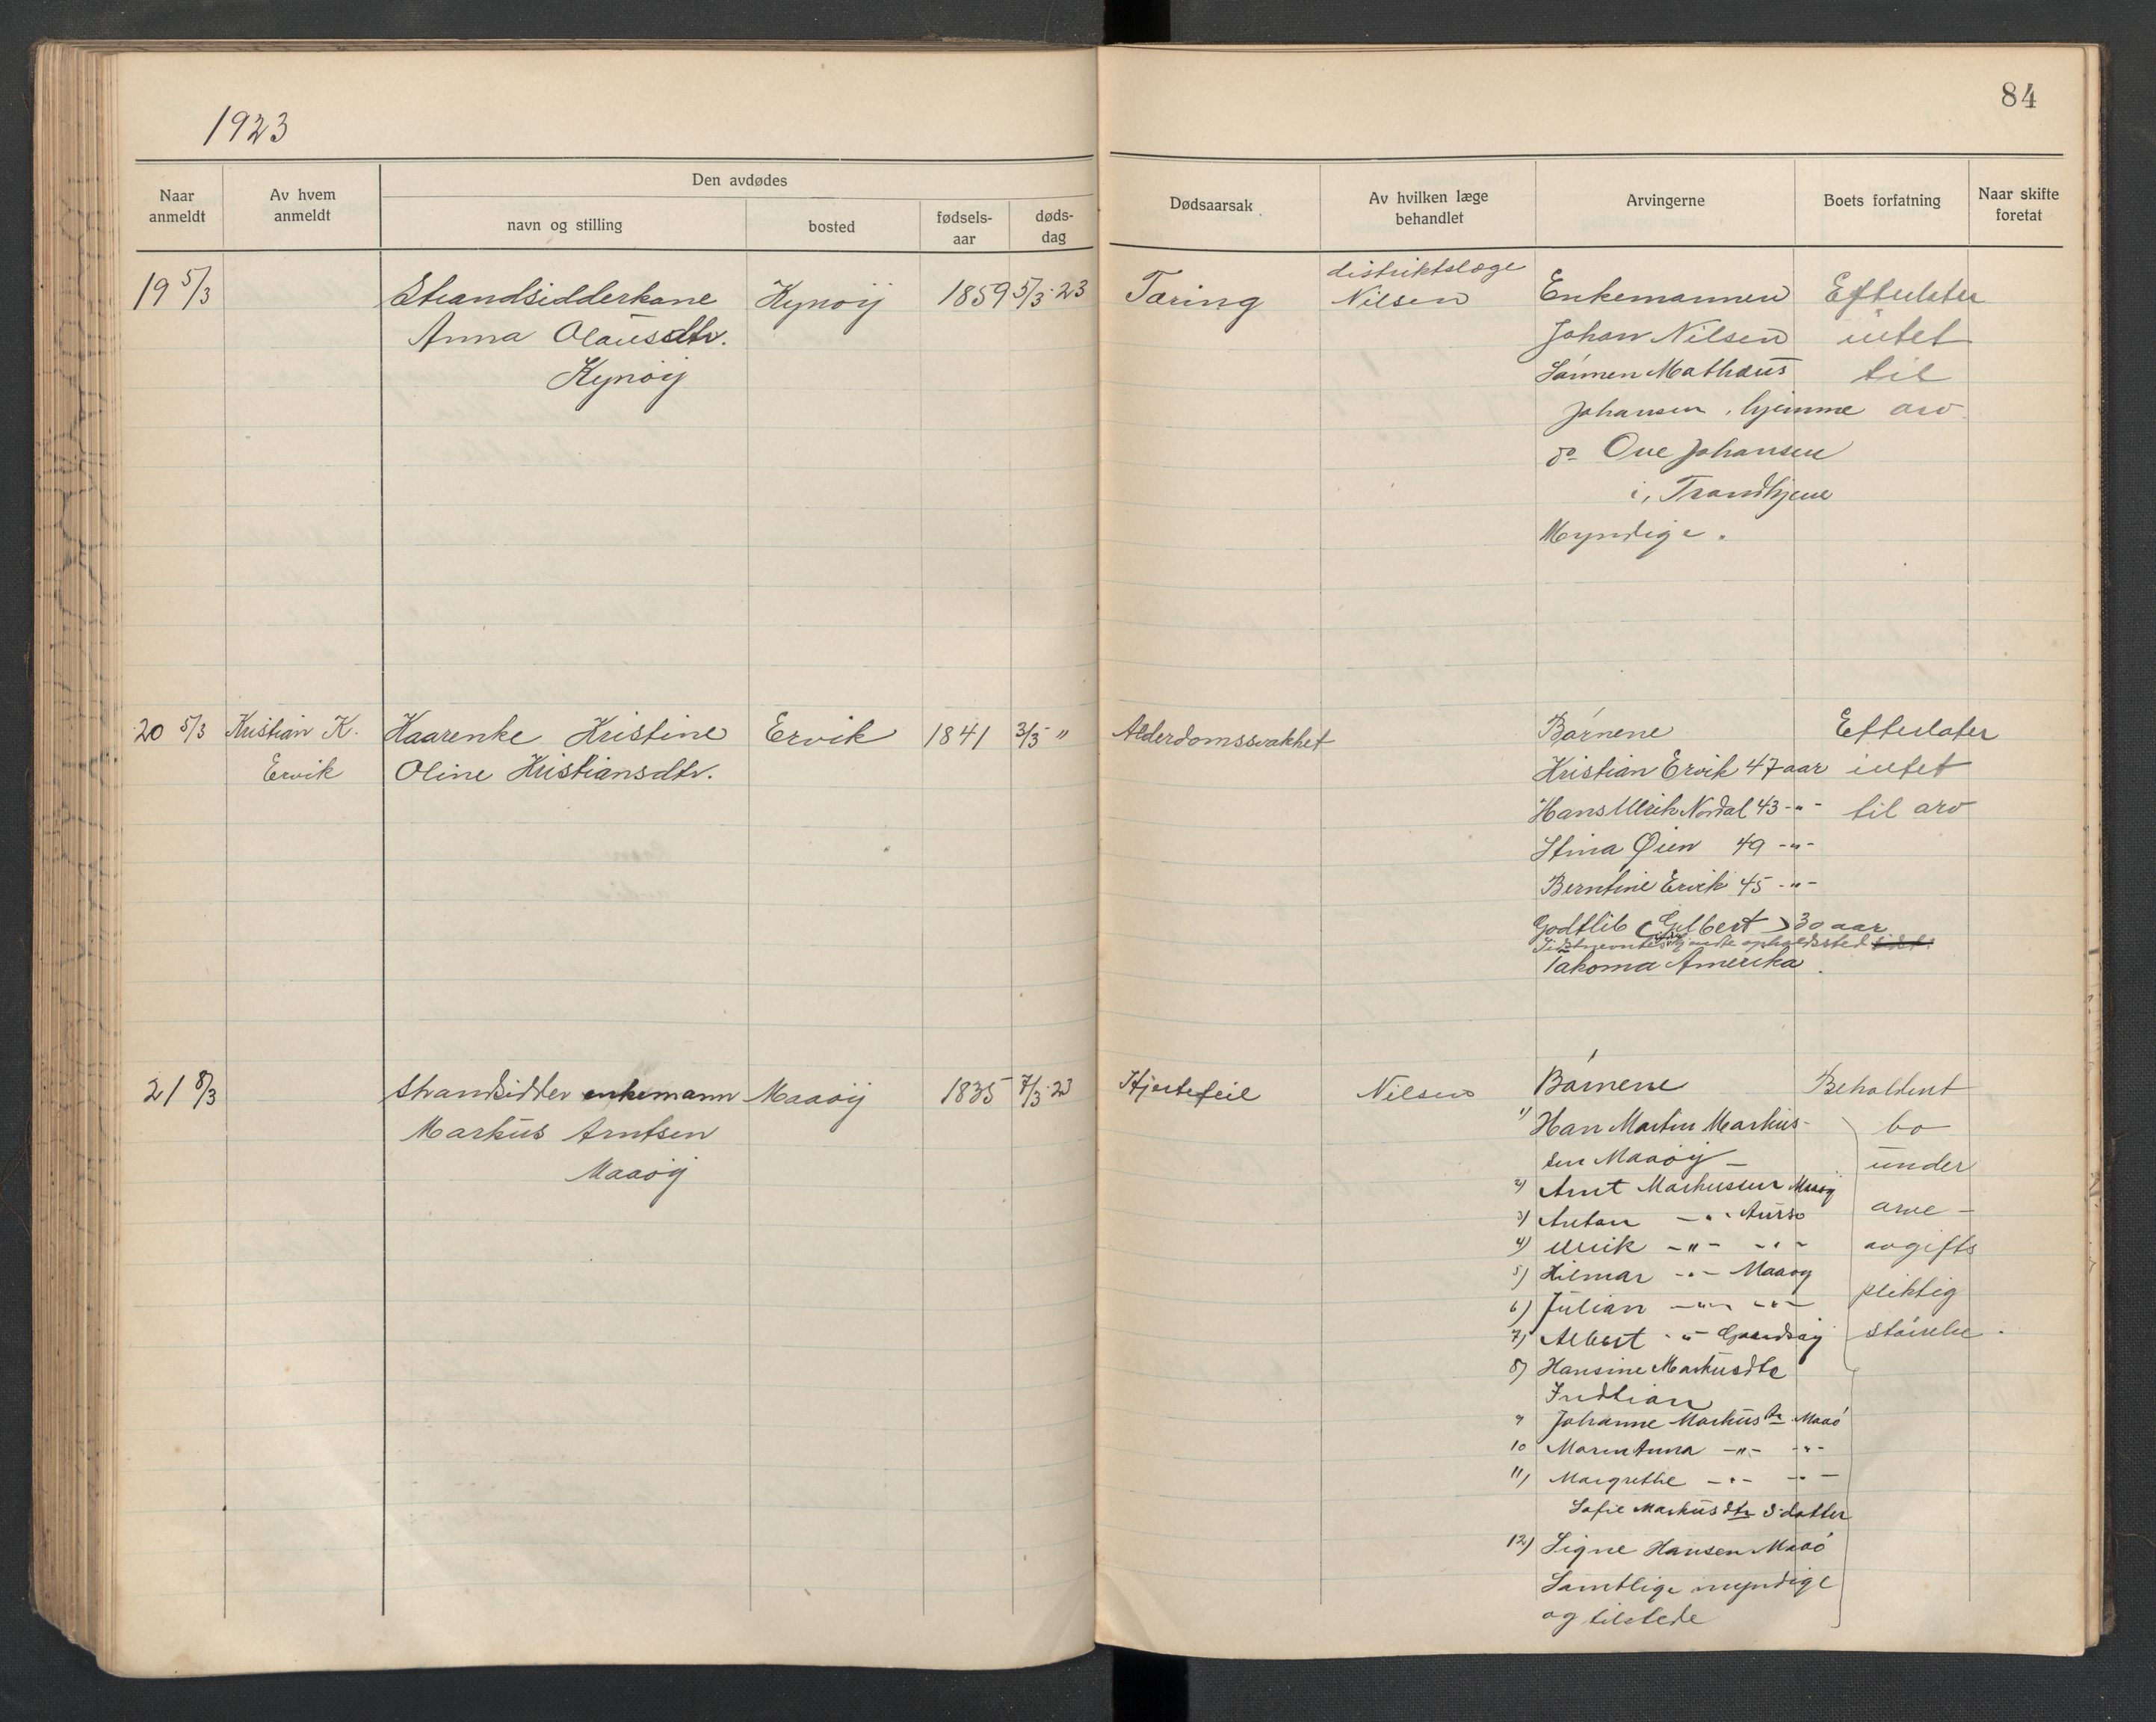 1923
84
Naar anmeldt
Av hvem anmeldt
Den avdødes
navn og stilling
bosted
fødsels-aar
døds-dag
Dødsaarsak
Av hvilken læge behandlet
Arvingerne
Boets forfatning
Naar skifte foretat
19 5/3
Strandsidderkone
Anna Olausdtr.
Kynøij
Kynøij
1859
5/3-23
Tæring
distriktslæge
Nilsen
Enkemannen
Johan Nilsen
Sønnen Mathæus
Johansen, hjemme
do Ove Johansen
i, Trondhjem
Myndige.
Efterlater
intet
til
arv.
20 5/3
Kristian K.
Ervik
Haarenke Kristine
Oline Kristiansdtr.
Ervik
1841
3/3 "
Alderdomssvakhet
Børnene
Kristian Ervik 47 aar
Hans Ulrik Nordal 43 -"-
Stina Øien 49 -"-
Berntine Ervik 45 -"-
Godtlib (Gilbert) 30 aar
Sidstnevntes opholdssted
Takoma Amerika.
Efterlater
intet
til arv
21 8/3
Strandsidder enkemann
Markus Arntsen
Maaøij
Maaøij
1835
7/3-23
Hjertefeil
Nilsen
Børnene
1) Han Martin Markus-
sen Maaøij -
2) Arnt Markussen Maaøij
3) Anton -"- Aursø
4) Ulrik -"- -"-
5) Hilmar -"- Maaøy
6) Julian -"- -"-
7) Albert -"-
8) Hansine Markusdtr
Indlian
9 Johanne Markusdtr Maaø
10 Maren Anna -"- -"-
11) Margrethe -"- -"-
Sofie Markusdtr's datter
12) Signe Hansen Maaø
Samtlige myndige
og tilstede
Beholdent
bo
under
arve-
avgifts
pliktig
størrelse.